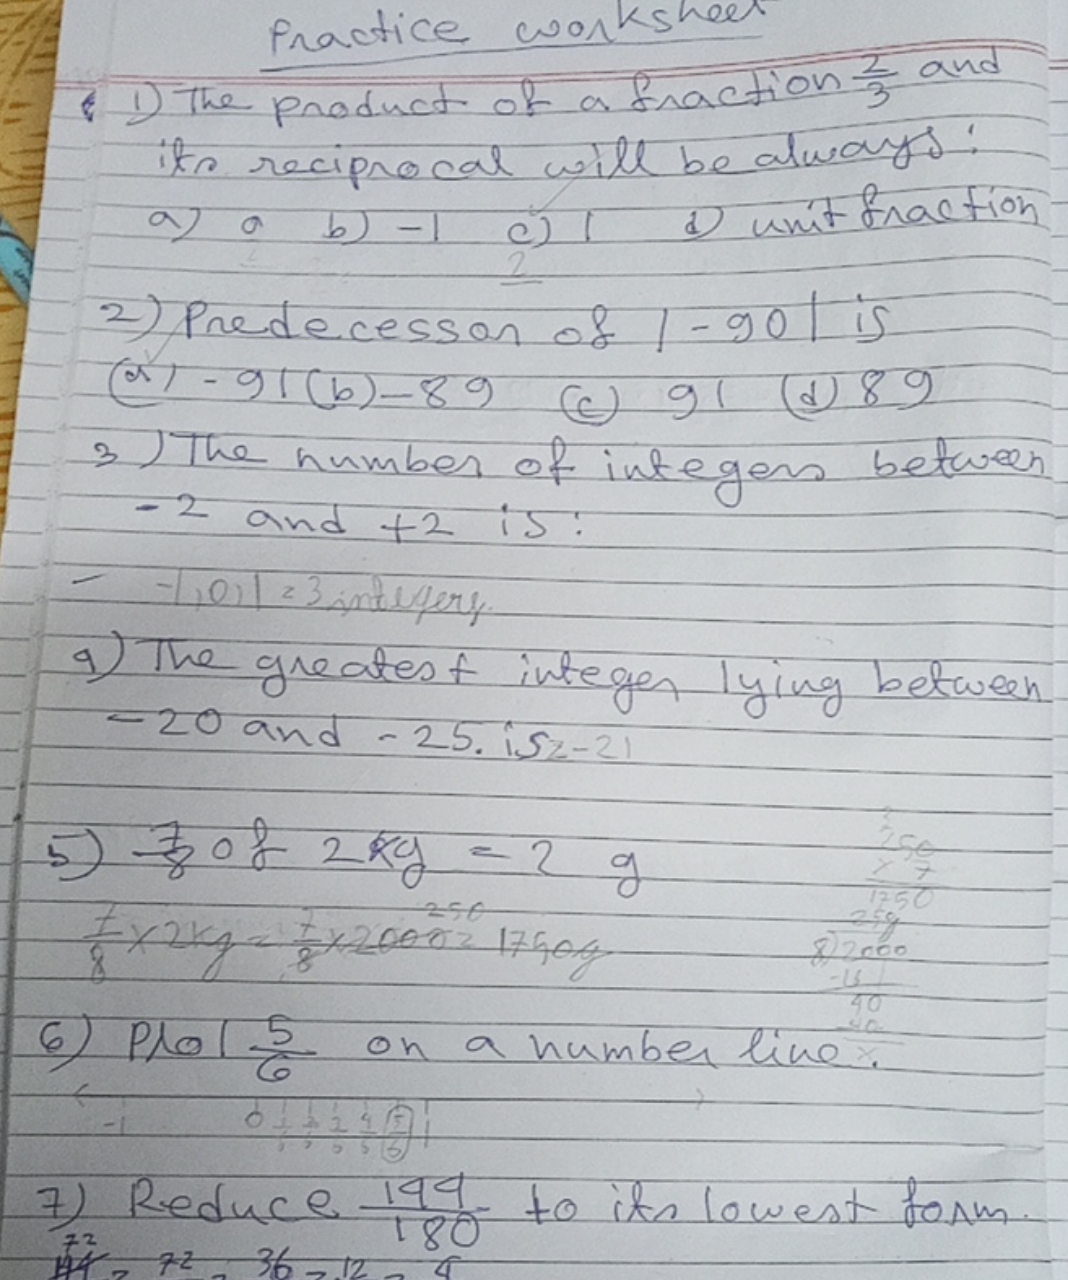 Practice worksheet
1) The product of a fraction 2/3 and
its reciprocal will be always:
a) 0 b) -1 c) 1 d) unit fraction
2) Predecessor of |-90| is
(a) -91 (b) -89 (c) 91 (d) 89
3) The number of integers between
-2 and +2 is:
- -1,0,1 = 3 integers
4) The greatest integer lying between
-20 and -25. is = -21
5) 7/8 of 2kg = ? g
250
× 7
1750
7/8 × 2kg = 7/8 × 2000 250 = 1750g
8)2000
-16
40
40
×
6) Plot 5/6 on a number line.
-1 0 5/6 1
7) Reduce 144/180 to its lowest form.
72
144 = 72 = 36 = 12 = 4